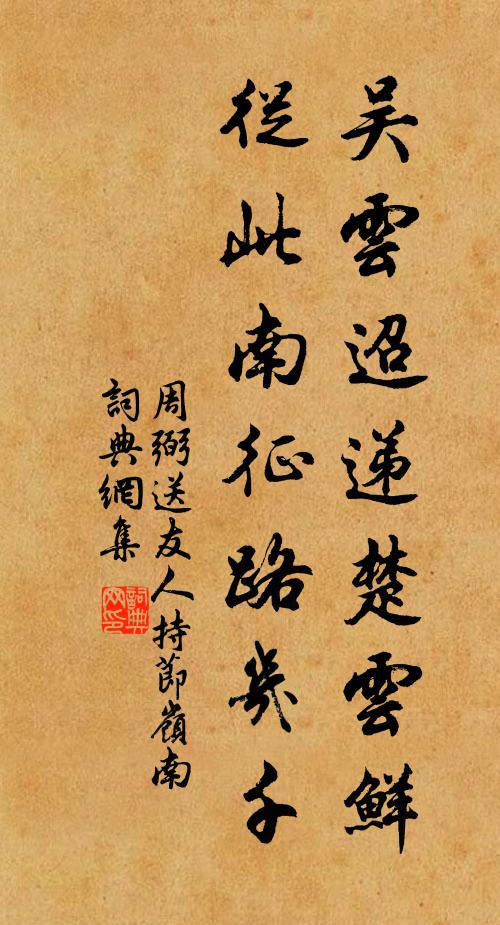 吴雲迢遞楚雲鮮
從此南征路幾千
周弼送友人持節嶺南
詞典網集
詞典网印